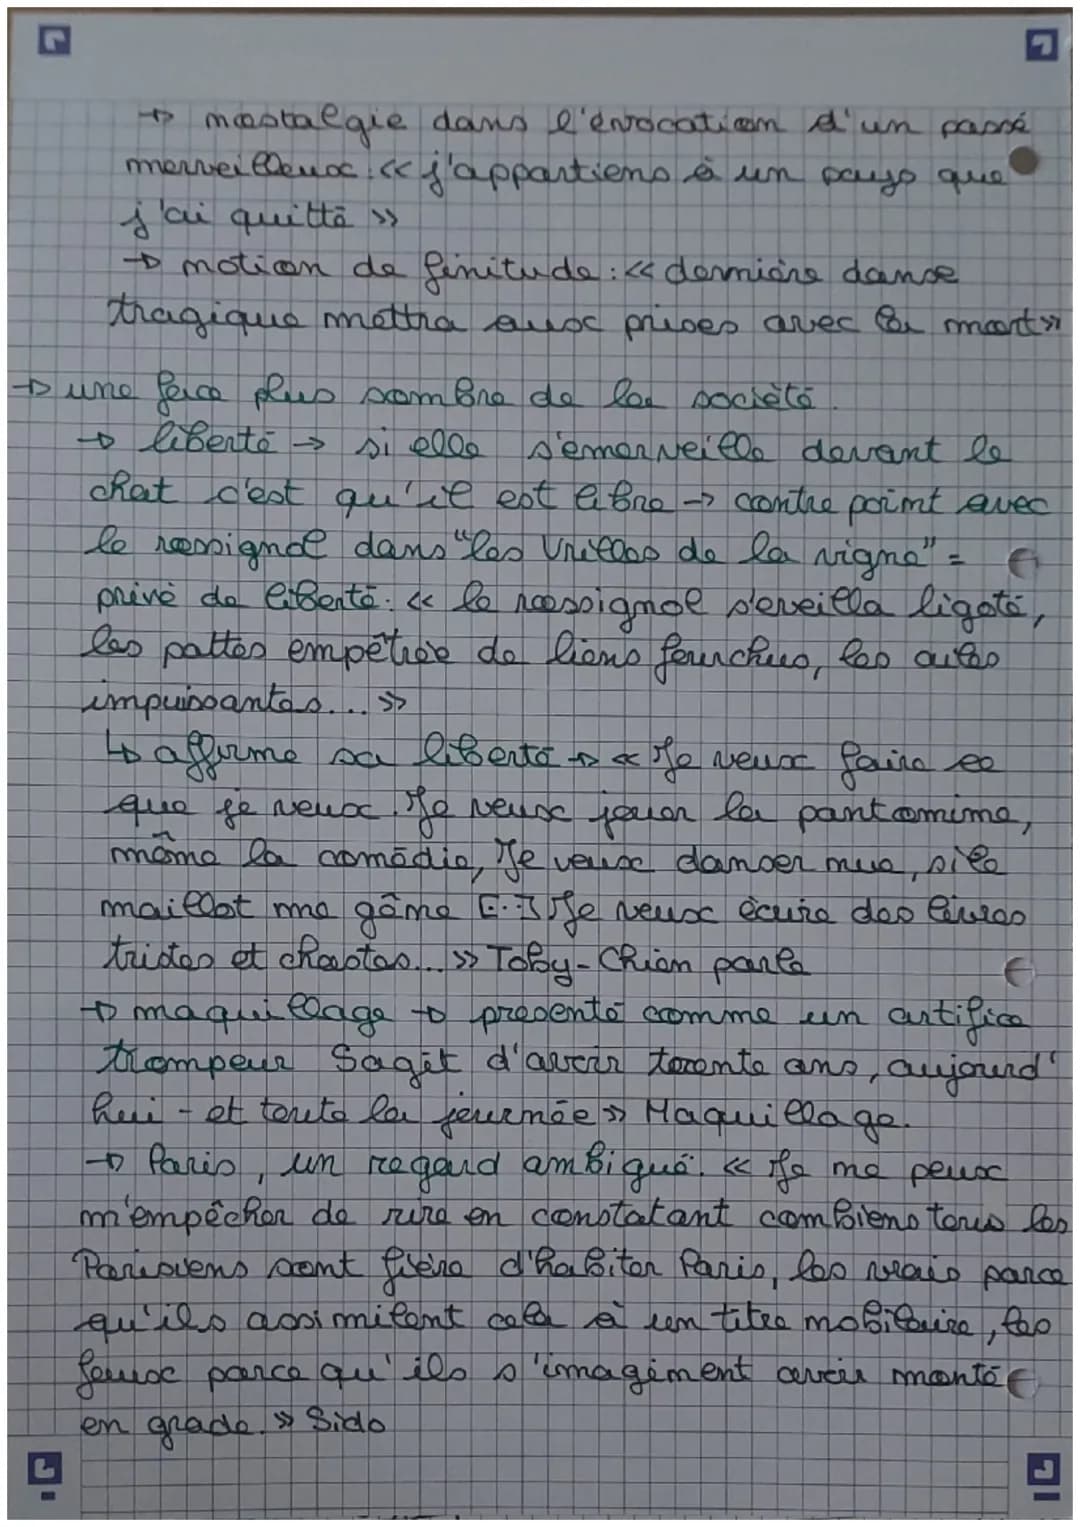 → nostalgie dans l'évocation d'un passé
merveilleux : « j'appartiens à un pays que
j'ai quitté »
→ notion de finitude : « dernière danse
tragique mettra aux prises avec la mort »
→ une face plus sombre de la société.
→ liberté → si elle s'émerveille devant le
chat c'est qu'il est libre → contre point avec
le rossignol dans "les Vrilles de la vigne" =
privé de liberté : « le rossignol s'éveilla ligoté,
les pattes empêtrée de liens fourchus, les ailes
impuissantes... »
↳ affirme sa liberté → « Je veux faire ce
que je veux. Je veux jouer la pantomime,
même la comédie, Je veux danser nue, si le
maillot me gêne [...] Je veux écrire des livres
tristes et chastes... » Toby-Chien parle
→ maquillage → présenté comme un artifice
trompeur Sagit d'avoir trente ans, aujourd'
hui - et toute la journée » Maquillage.
→ Paris, un regard ambiguë. « Je me peux
m'empêcher de rire en constatant combiens tous les
Parisiens sont fière d'habiter Paris, les vrais parce
qu'ils assimilent cela à un titre mobiliaire, les
feaux parce qu'ils s'imaginent avoir monté
en grade. » Sido